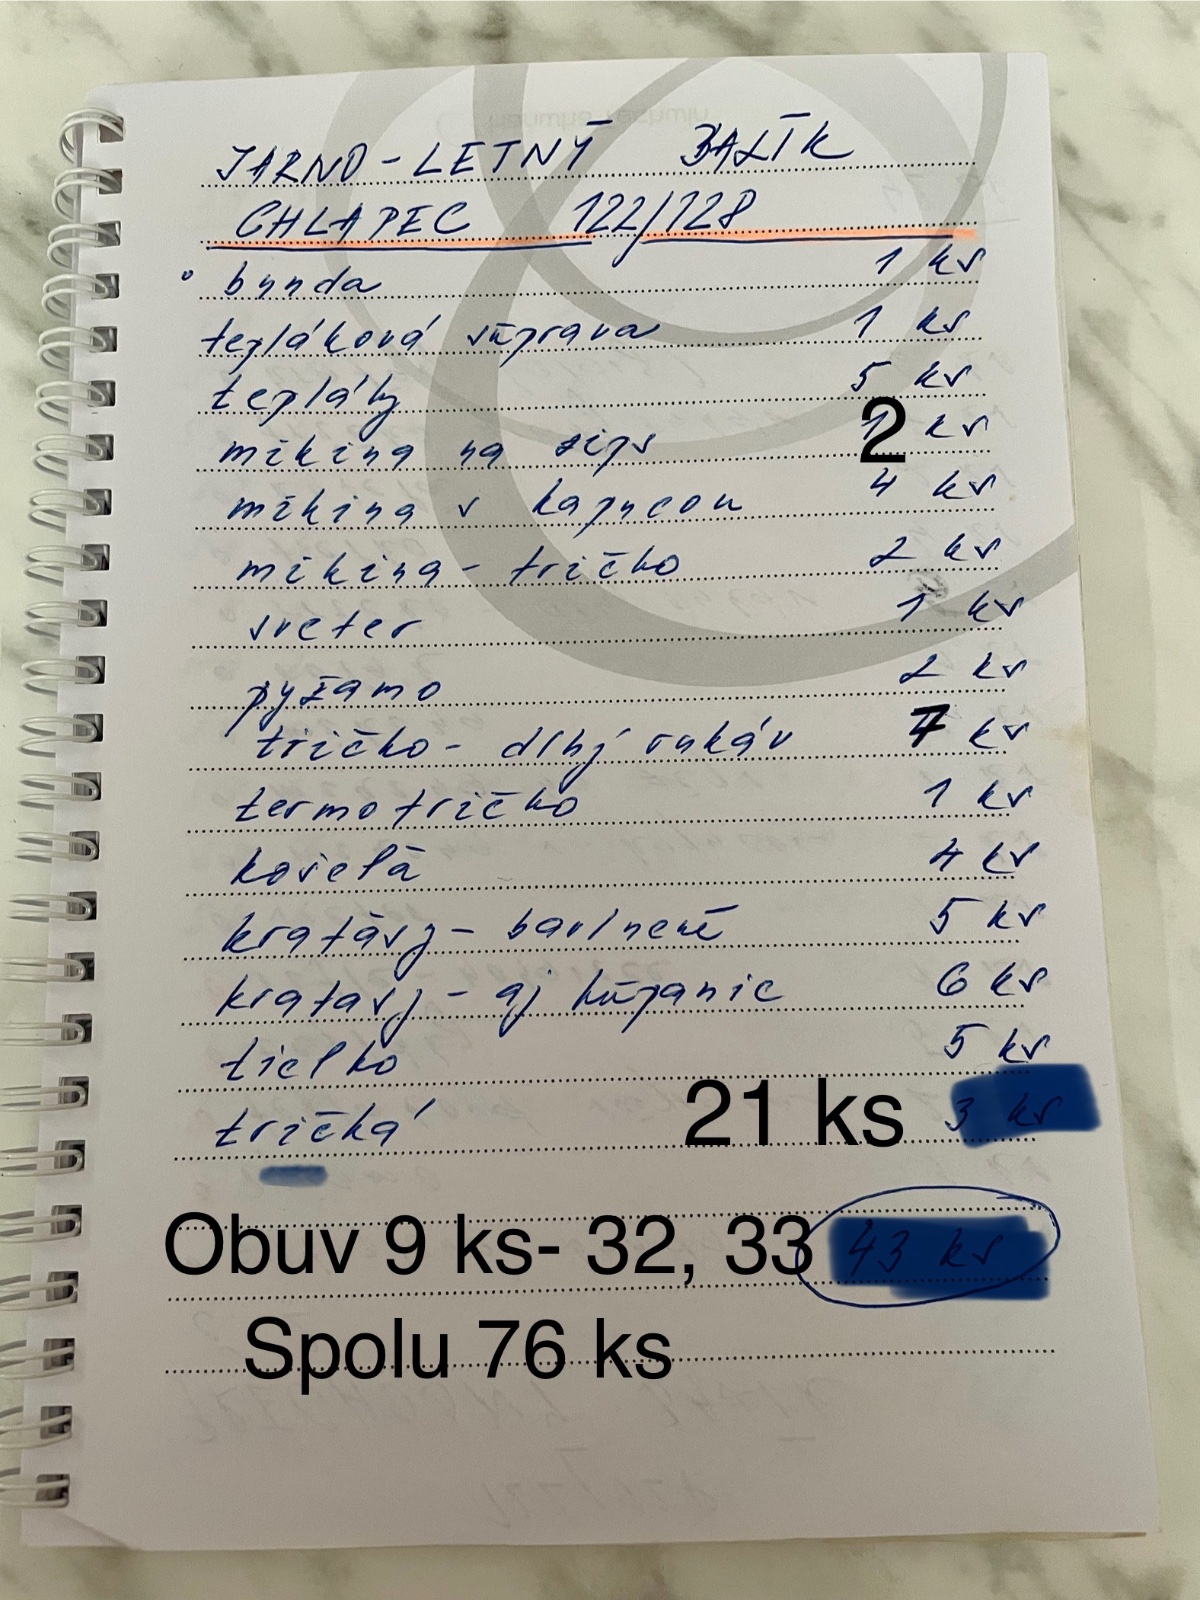 JARNO-LETNÝ BALÍK
CHLAPEC 122/128
bunda 1 ks
tepláková súprava 1 ks
tepláky 5 ks
mikina na zips 2 ks
mikina s kapucou 4 ks
mikina - tričko 2 ks
sveter 1 ks
pyžamo 2 ks
tričko - dlhý rukáv 7 ks
termotričko 1 ks
košeľa 4 ks
kraťasy - bavlnené 5 ks
kraťasy - aj kúpanie 6 ks
tielko 5 ks
tričká 21 ks 3 ks
Obuv 9 ks- 32, 33 43 ks
Spolu 76 ks